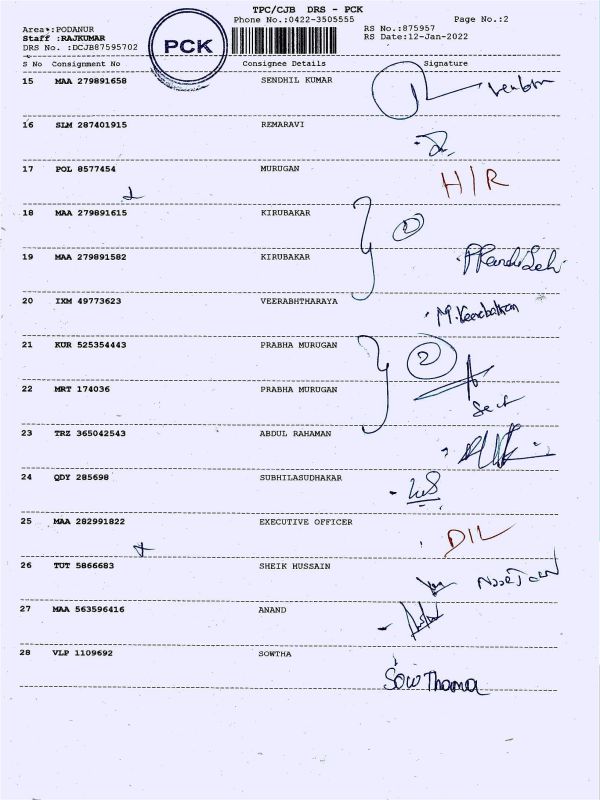 TPC/CJB DRS - PCK
Phone No.:0422-3505555 Page No.:2
Area*:PODANUR RS No.:875957
Staff :RAJKUMAR RS Date:12-Jan-2022
DRS No. :DCJB87595702
PCK
S No Consignment No Consignee Details Signature
15 MAA 279891658 SENDHIL KUMAR
16 SLM 287401915 REMARAVI
17 POL 8577454 MURUGAN H/R
18 MAA 279891615 KIRUBAKAR 2
19 MAA 279891582 KIRUBAKAR
20 IXM 49773623 VEERABHTHARAYA
21 KUR 525354443 PRABHA MURUGAN 2
22 MRT 174036 PRABHA MURUGAN
23 TRZ 365042543 ABDUL RAHAMAN
24 QDY 285698 SUBHILASUDHAKAR
25 MAA 282991822 EXECUTIVE OFFICER D/L
26 TUT 5866683 SHEIK HUSSAIN
27 MAA 563596416 ANAND
28 VLP 1109692 SOWTHA
SowThama